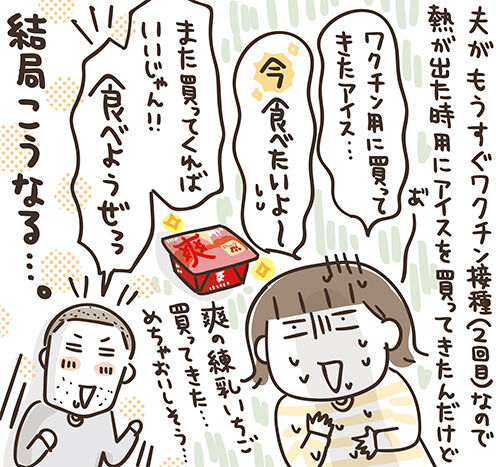 夫が もうすぐワクチン接種(2回目)なので
熱が出た時用にアイスを買ってきたんだけど
ワクチン用に買って
きたアイス…
お゛
今 食べたいよ〜
爽
爽の練乳いちご
買ってきた…
めちゃおいしそう…
また買ってくれば
いいじゃん!!
食べようぜっっ
結局こうなる…。